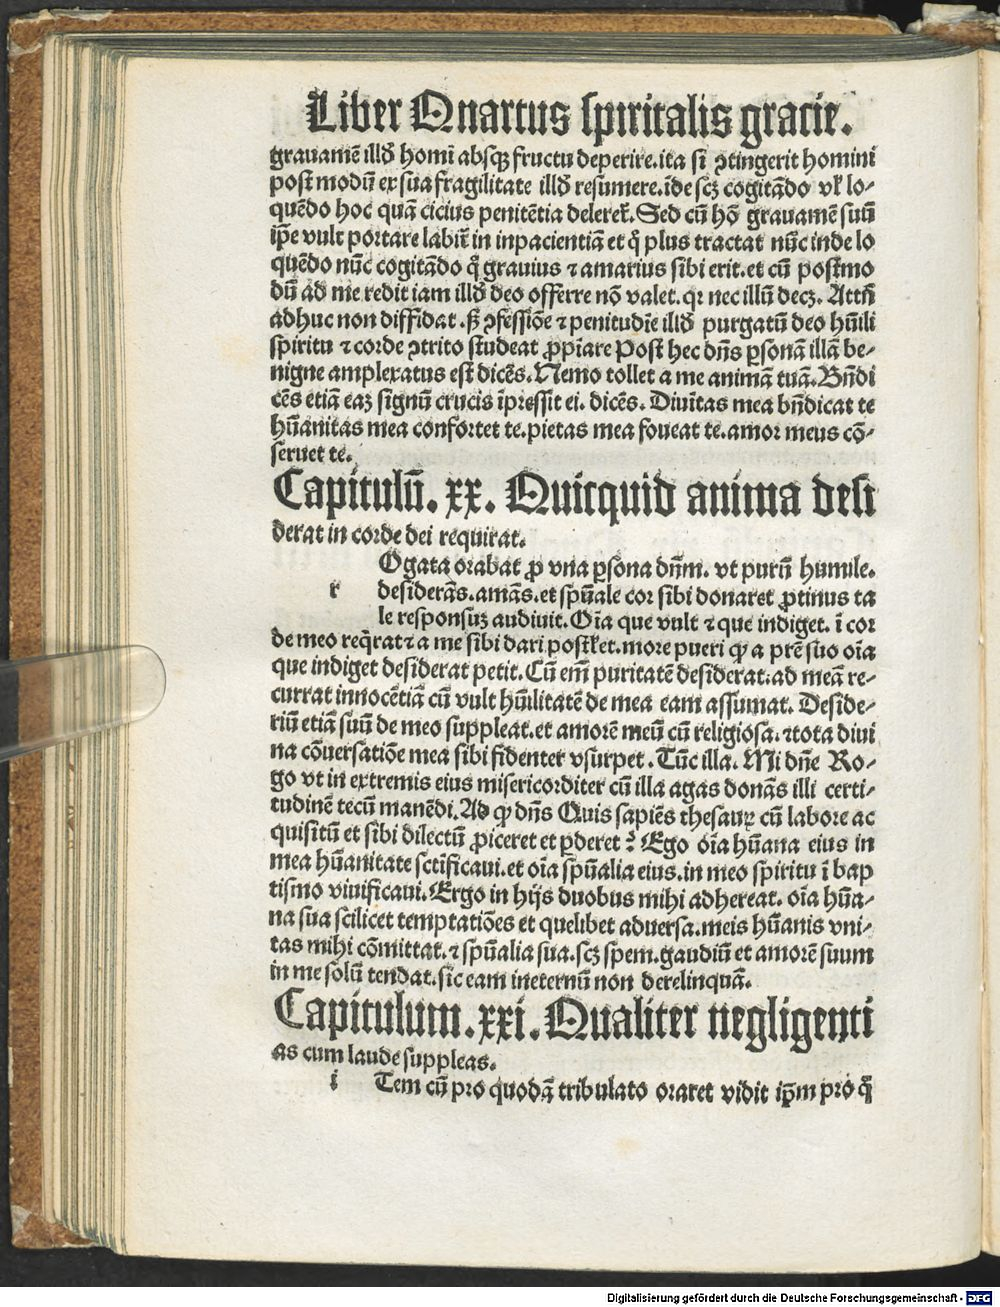 Liber Quartus spiritalis gracie.
grauamē illđ homī absqꝫ fructu deperire. ita si ꝯtingerit homini
post modū ex sua fragilitate illđ resumere. īde scꝫ cogitādo vƚ lo-
quēdo hoc quā cicius penitētia delereƭ. Sed cū hō grauamē suū
ip̄e vult portare labiƭ in inpacientiā et q̊ plus tractat nūc inde lo
quēdo nūc cogitādo q̊ grauius ⁊ amarius sibi erit. et cū postmo
dū ad me redit iam illđ deo offerre nō valet. qꝛ nec illū decꝫ. Attn̄
adhuc non diffidat. sꝫ ꝯfessiōe ⁊ penitudīe illđ purgatū deo hūili
spiritu ⁊ corde ꝯtrito studeat ꝓpīare Post hec dn̄s ꝑsonā illā be-
nigne amplexatus est dicēs. Nemo tollet a me animā tuā. Bn̄di
cēs etiā eaꝫ signū crucis īpressit ei. dicēs. Diuīitas mea bn̄dicat te
hūanitas mea confortet te. pietas mea foueat te. amor meus cō-
seruet te.
Capitulū. xx. Quicquid anima desi
derat in corde dei requirat.
Ogata orabat ꝓ vna ꝑsona dn̄m. vt purū humile.
r desiderās. amās. et spūale cor sibi donaret ꝓtinus ta
le responsuꝫ audiuit. Oīa que vult ⁊ que indiget. ī cor
de meo reqͥrat ⁊ a me sibi dari postƚet. more pueri qͥ a prē suo oīa
que indiget desiderat petit. Cū em̄ puritatē desiderat. ad meā re-
currat innocētiā cū vult hūilitatē de mea eam assumat. Deside-
riū etiā suū de meo suppleat. et amorē meū cū religiosa. ⁊ tota diui
na cōuersatiōe mea sibi fidenter vsurpet. Tūc illa. Mi dn̄e Ro-
go vt in extremis eius misericorditer cū illa agas donās illi certi-
tudinē tecū manēdi. Ad qͥ dn̄s Quis sapiēs thesauꝝ cū labore ac
quisitū et sibi dilectū ꝓiceret et ꝑderet? Ego oīa hūana eius in
mea hūanitate sctīficaui. et oīa spūalia eius. in meo spiritu ī bap
tismo viuificaui. Ergo in hijs duobus mihi adhereat. oīa hūa-
na sua scilicet temptatiōes et quelibet aduersa. meis hūanis vni-
tas mihi cōmittat. ⁊ spūalia sua. scꝫ spem. gaudiū et amorē suum
in me solū tendat. sic eam ineternū non derelinquā.
Capitulum. xxi. Qualiter negligenti
as cum laude suppleas.
i Tem cū pro quodā tribulato oraret vidit ip̄m pro q̊
Digitalisierung gefördert durch die Deutsche Forschungsgemeinschaft - DFG